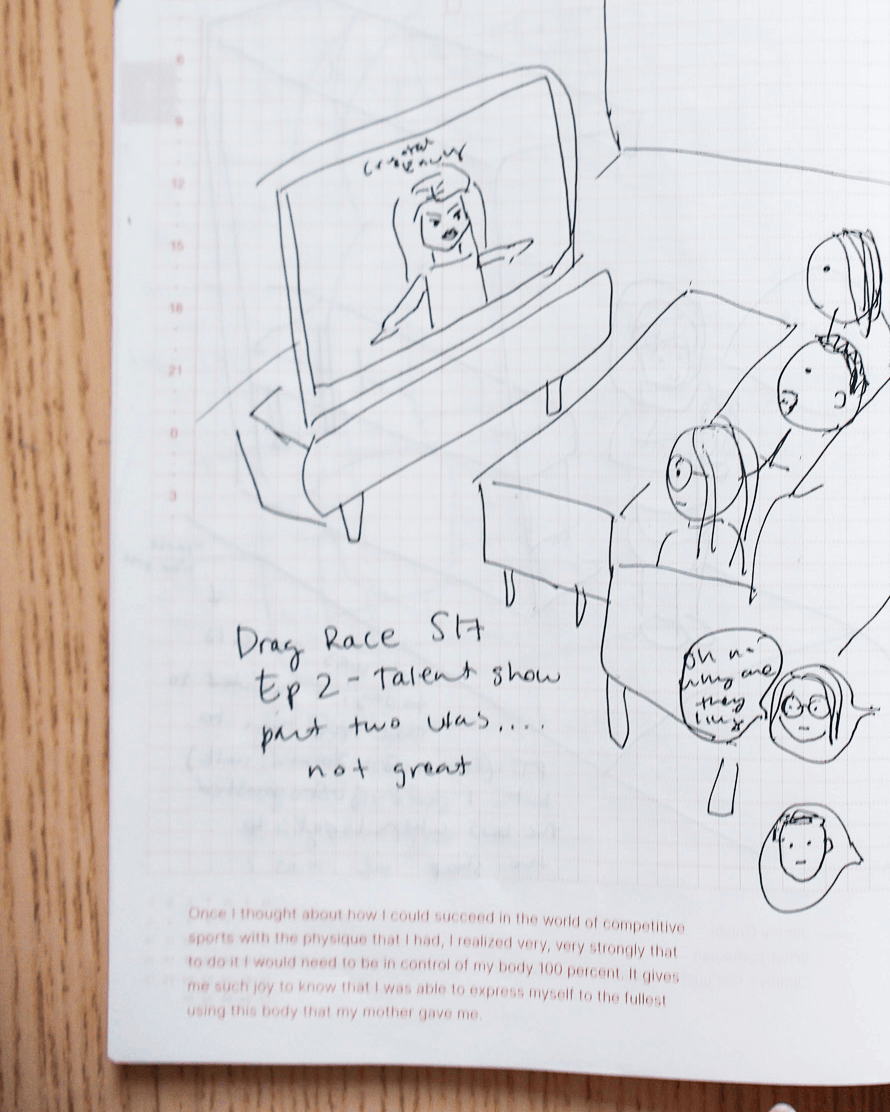 Crystal
Envy
6
9
12
15
18
21
0
3
Drag Race S17
Ep 2 - Talent show
part two was....
not great
oh no
why are
they
Once I thought about how I could succeed in the world of competitive
sports with the physique that I had, I realized very, very strongly that
to do it I would need to be in control of my body 100 percent. It gives
me such joy to know that I was able to express myself to the fullest
using this body that my mother gave me.